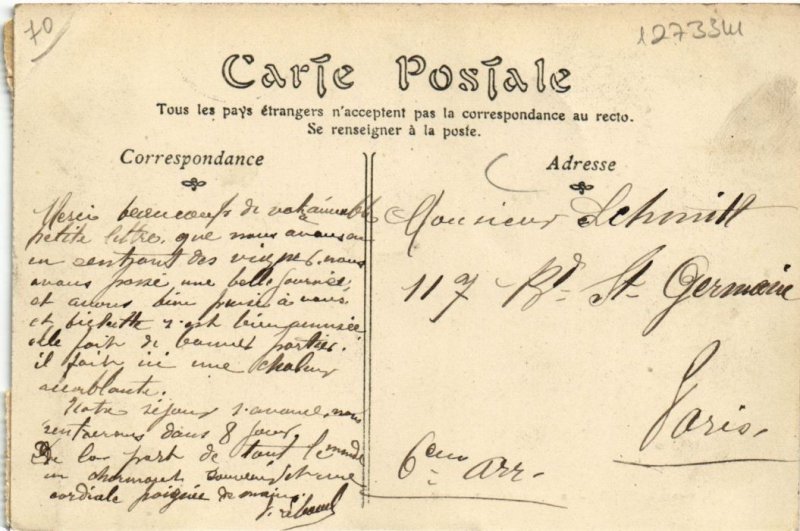 70
12733W
Carte Postale
Tous les pays étrangers n'acceptent pas la correspondance au recto.
Se renseigner à la poste.
Correspondance
Merci beaucoup de votre aimable
petite lettre, que nous avons eu
en rentrant des vignes, nous
avons passé une belle journée,
et avons bien pensé à vous
et bichette s'est bien amusée
elle fait de bonnes parties.
il fait ici une chaleur
accablante.
Notre séjour s'avance, nous
rentrerons dans 8 jours
De la part de tout le monde
un charmant souvenir et une
cordiale poignée de mains.
Adresse
Monsieur Schmitt
117 Bd. St. Germain
Paris.
6em arr.